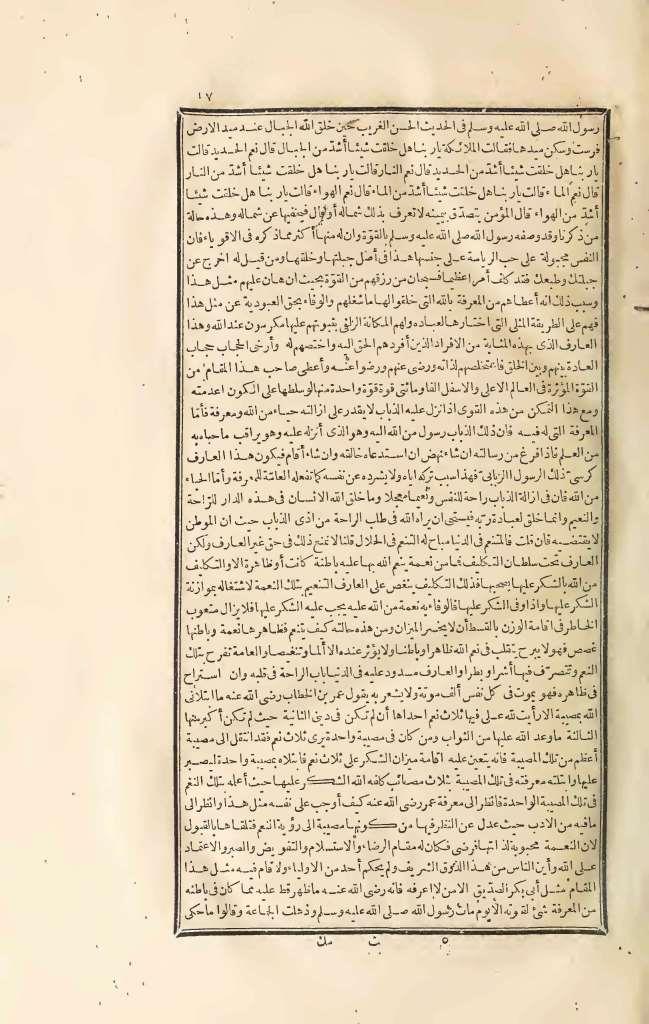 ١٧
رسول الله صلى الله عليه وسلم فى الحديث الحسن الغريب حين خلق الله الجبال عند ميد الارض
فرست وسكن ميدها فقالت الملائكة يارب ناهل خلقت شيئا أشد من الجبال قال نعم الحديد قالت
ياربنا هل خلقت شيئا أشد من الحديد قال نعم النار قالت ياربنا هل خلقت شيئا أشد من النار
قال نعم الماء قالت ياربنا هل خلقت شيئا أشد من الماء قال نعم الهواء قالت ياربنا هل خلقت شيئا
أشد من الهواء قال المؤمن يتصدق بيمينه لا تعرف بذلك شماله أو قال فيخفيها عن شماله وهذه حالة
من ذكرنا وقد وصفه رسول الله صلى الله عليه وسلم بالقوة وان له منها أكثر مما ذكره فى الاقوياء فان
النفس مجبولة على حب الرياسة على جنسها هذا فى أصل جبلتها وخلقها ومن قيل له اخرج عن
جبلتك وطبعك فقد كلف أمرا عظيما فسبحان من رزقهم من القوة بحيث ان هان عليهم مثل هذا
وسبب ذلك انه أعطاهم من المعرفة بالله التى خلقوا لها ما شغلهم والوفاء بحق العبودية عن مثل هذا
فهم على الطريقة المثلى التى اختارها العباده ولهم المكانة الزلفى بثبوتهم عليها مكرمون عند الله وهذا
العارف الذى بهذه المثابة من الافراد الذين أفردهم الحق اليه واختصهم له وأرخى الحجاب حجاب
العادة بينهم وبين الخلق فاستخلصهم لذاته ورضى عنهم ورضوا عنه وأعطى صاحب هذا المقام من
القوة المؤثرة فى العالم الاعلى والاسفل ألفا ومائتى قوة قوة واحدة منها لو سلطها على الكون اعدمته
ومع هذا التمكن من هذه القوى اذا نزل عليه الذباب لا يقدر على ازالته حياء من الله ومعرفة فأما
المعرفة التى له فيه فان ذلك الذباب رسول من الله اليه وهو الذى أنزله عليه وهو يراقب ما جاء به
من العلم فاذا فرغ من رسالته ان شاء نهض ان استدعاه خالقه وان شاء أقام فيكون هذا العارف
كرسى ذلك الرسول الذبابى فهذا سبب تركه اياه ولا يشرده عن نفسه كما تفعله العامة للمعرفة وأما الحياء
من الله فان فى ازالة الذباب راحة للنفس ونعيما معجلا وما خلق الله الانسان فى هذه الدار للراحة
والنعيم وانما خلق لعبادة ربه فيستحى ان يراه الله فى طلب الراحة من اذى الذباب حيث ان الموطن
لا يقتضيه فان قلت فالمتنعم فى الدنيا مباح له التنعم فى الحلال قلنا لا نمنع ذلك فى حق غير العارف ولكن
العارف تحت سلطان التكليف فما من نعمة ينعم الله بها عليه باطنة كانت أو ظاهرة الا والتكليف
من الله بالشكر عليها يصحبها فذلك التكليف ينغص على العارف التنعيم بتلك النعمة لاشتغاله بموازنة
الشكر عليها واذا وفى الشكر عليها فالوفاء به نعمة من الله عليه يجب عليه الشكر عليها فلا يزال متعوب
الخاطر فى اقامة الوزن بالقسط أن لا يخسر الميزان ومن هذه حالته كيف يتنعم فظاهرها نعمة وباطنها
غصص فهو لا يبرح يتقلب فى نعم الله ظاهرا وباطنا ولا يؤثر عنده الا ألما وتنغيصا والعامة تفرح بتلك
النعم وتتصرف فيها أشرا وبطرا والعارف مسدود عليه فى الدنيا باب الراحة فى قلبه وان استراح
فى ظاهره فهو يموت فى كل نفس ألف موتة ولا يشعر به يقول عمر بن الخطاب رضى الله عنه ما ابتلانى
الله بمصيبة الا رأيت لله على فيها ثلاث نعم احداها أن لم تكن فى دينى الثانية حيث لم تكن أكبر منها
الثالثة ما وعد الله عليها من الثواب ومن كان فى مصيبة واحدة يرى ثلاث نعم فقد انتقل الى مصيبة
أعظم من تلك المصيبة فانه يتعين عليه اقامة ميزان الشكر على ثلاث نعم فابتلاه بمصيبة واحدة ليصبر
عليها وابتلته معرفته فى تلك المصيبة بثلاث مصائب كلفه الله الشكر عليها حيث أعلمه بتلك النعم
فى تلك المصيبة الواحدة فانظر الى معرفة عمر رضى الله عنه كيف أوجب على نفسه مثل هذا وانظر الى
ما فيه من الادب حيث عدل عن النظر فيها من كونها مصيبة الى رؤية النعم فتلقاها بالقبول
لان النعمة محبوبة لذاتها فرضى فكان له مقام الرضاء والاستسلام والتفويض والصبر والاعتماد
على الله وأين الناس من هذا الذوق الشريف ولم يحكم أحد من الاولياء ولا قام فيه مثل هذا
المقام مثل أبى بكر الصديق الا من لا اعرفه فانه رضى الله عنه ما ظهر قط عليه مما كان فى باطنه
من المعرفة شئ لقوته الا يوم مات رسول الله صلى الله عليه وسلم وذهلت الجماعة وقالوا ما حكى
٥ ت مك